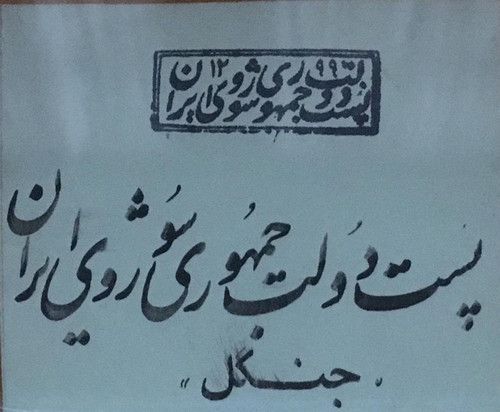 پست دولت جمهوری سوژوی ایران
پست دولت جمهوری سوژوی ایران
« جنگل »